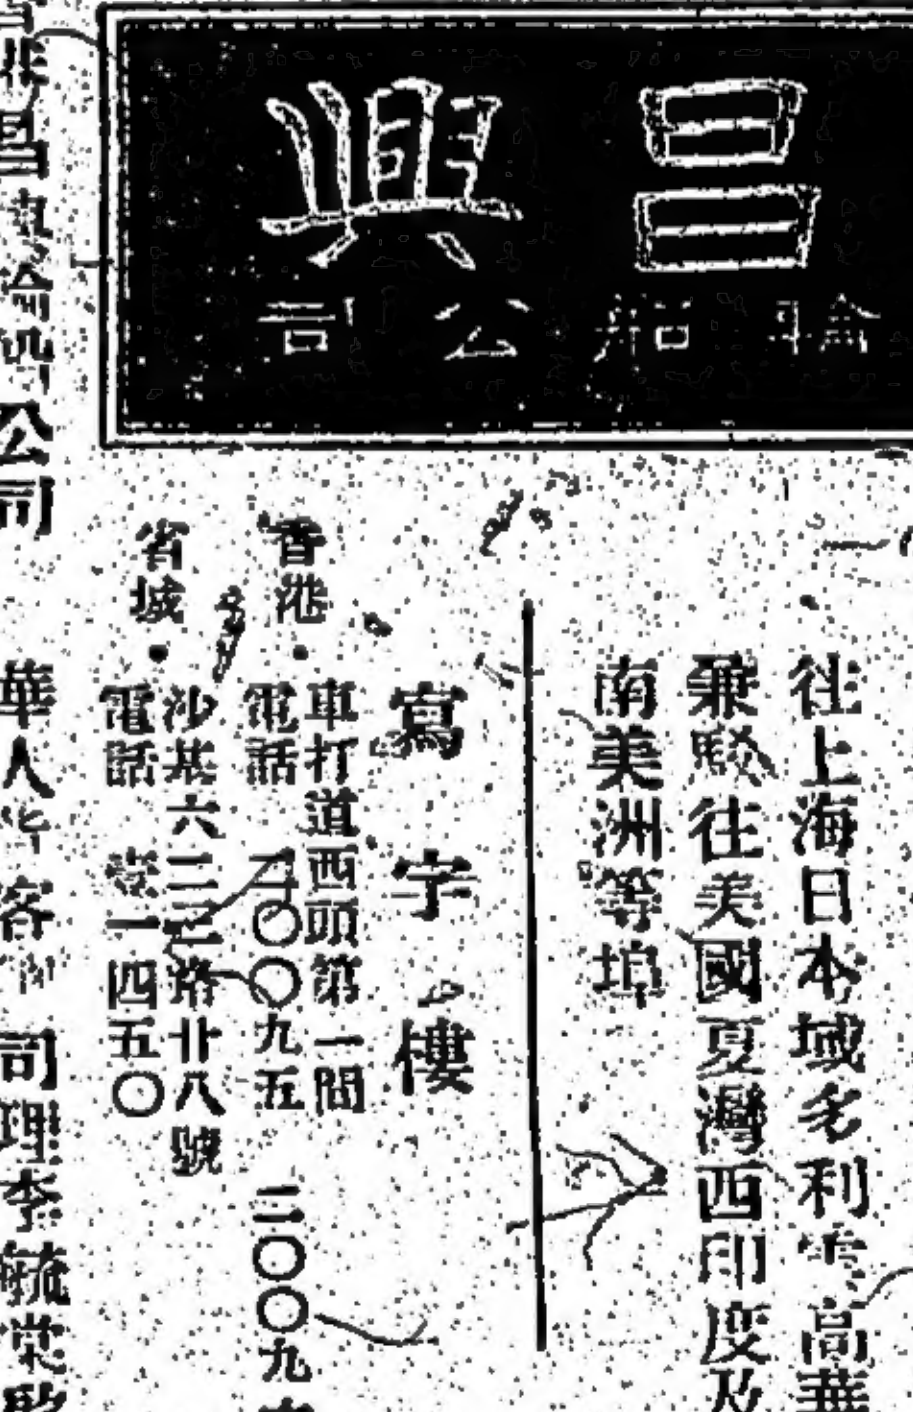 昌興
輪船公司
往上海日本域多利雲高華
兼駁往美國夏灣西印度及
南美洲等埠
寫字樓
香港•
車打道西頭第一間
電話 二〇〇九五 二〇〇九
省城•
沙基六二三路廿八號
電話 壹一四五〇
昌輪公司 華人 客 司理李毓棠